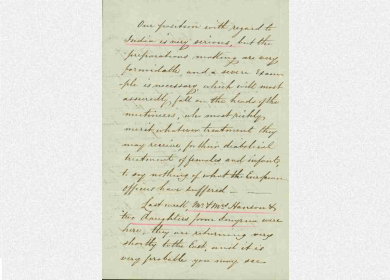 Our position with regard to
India is very serious, but the
preparations making are very
formidable and a severe exam-
ple is necessary which will most
assuredly, fall on the heads of the
mutineers, who most richly,
merit whatever treatment they
may receive for their diabolical
treatment of females and infants
to say nothing of what the European
officers have suffered —
Last week Mr & Mrs Hanson &
two daughters from Smyrna were
here, they are returning very
shortly to the East, and it is
very probable you may see